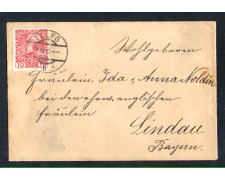 Wohlgeboren
Fräulein Ida & Anna Noldin
bei den ehrw. englischen
Fräulein
Lindau
Bayern.
10